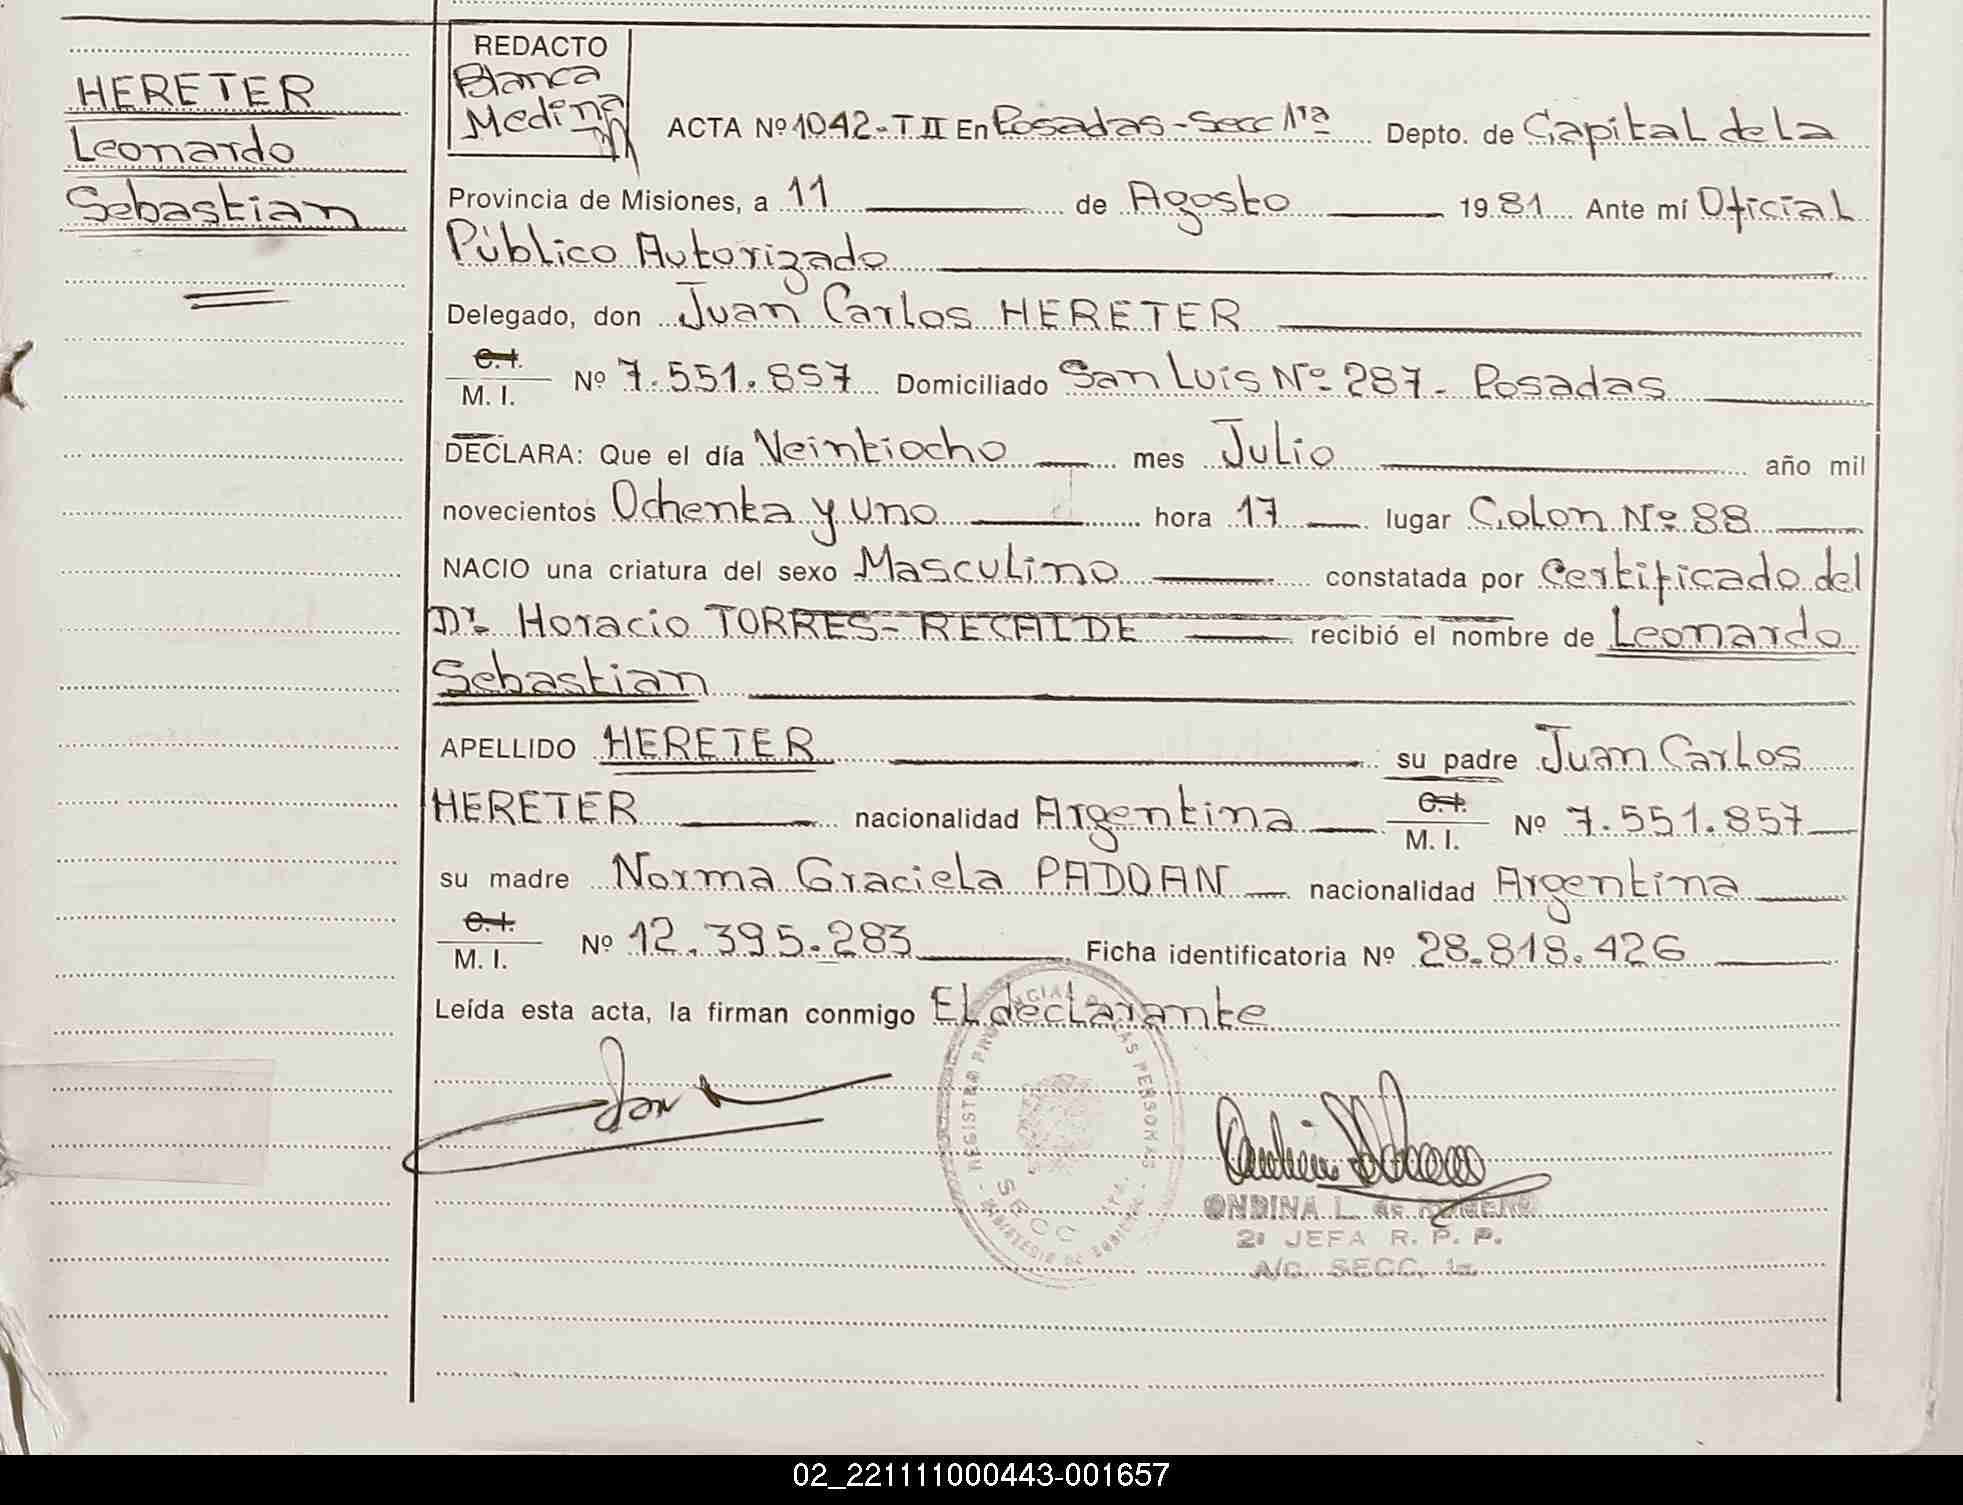 HERETER
Leonardo
Sebastian
REDACTO
Blanca
Medina
ACTA Nº 1042-T II En Posadas-Secc 1ra Depto. de Capital de la
Provincia de Misiones, a 11 de Agosto 1981 Ante mí Oficial
Público Autorizado
Delegado, don Juan Carlos HERETER
C.I.
M. I. Nº 7.551.857 Domiciliado San Luis Nº 287- Posadas
DECLARA: Que el día Veintiocho mes Julio año mil
novecientos Ochenta y uno hora 17 lugar Colon Nº 88
NACIO una criatura del sexo Masculino constatada por Certificado del
Dr. Horacio TORRES-RECALDE recibió el nombre de Leonardo
Sebastian
APELLIDO HERETER su padre Juan Carlos
HERETER nacionalidad Argentina C.I. M. I. Nº 7.551.857
su madre Norma Graciela PADOAN nacionalidad Argentina
C.I.
M. I. Nº 12.395.283 Ficha identificatoria Nº 28.818.426
Leída esta acta, la firman conmigo El declarante
REGISTRO PERSONAS
SECC 1ra.
MINISTERIO DE GOBIERNO
ONDINA L. de ROMERO
2ª JEFA R. P. P.
A/C. SECC. 1a.
02_221111000443-001657